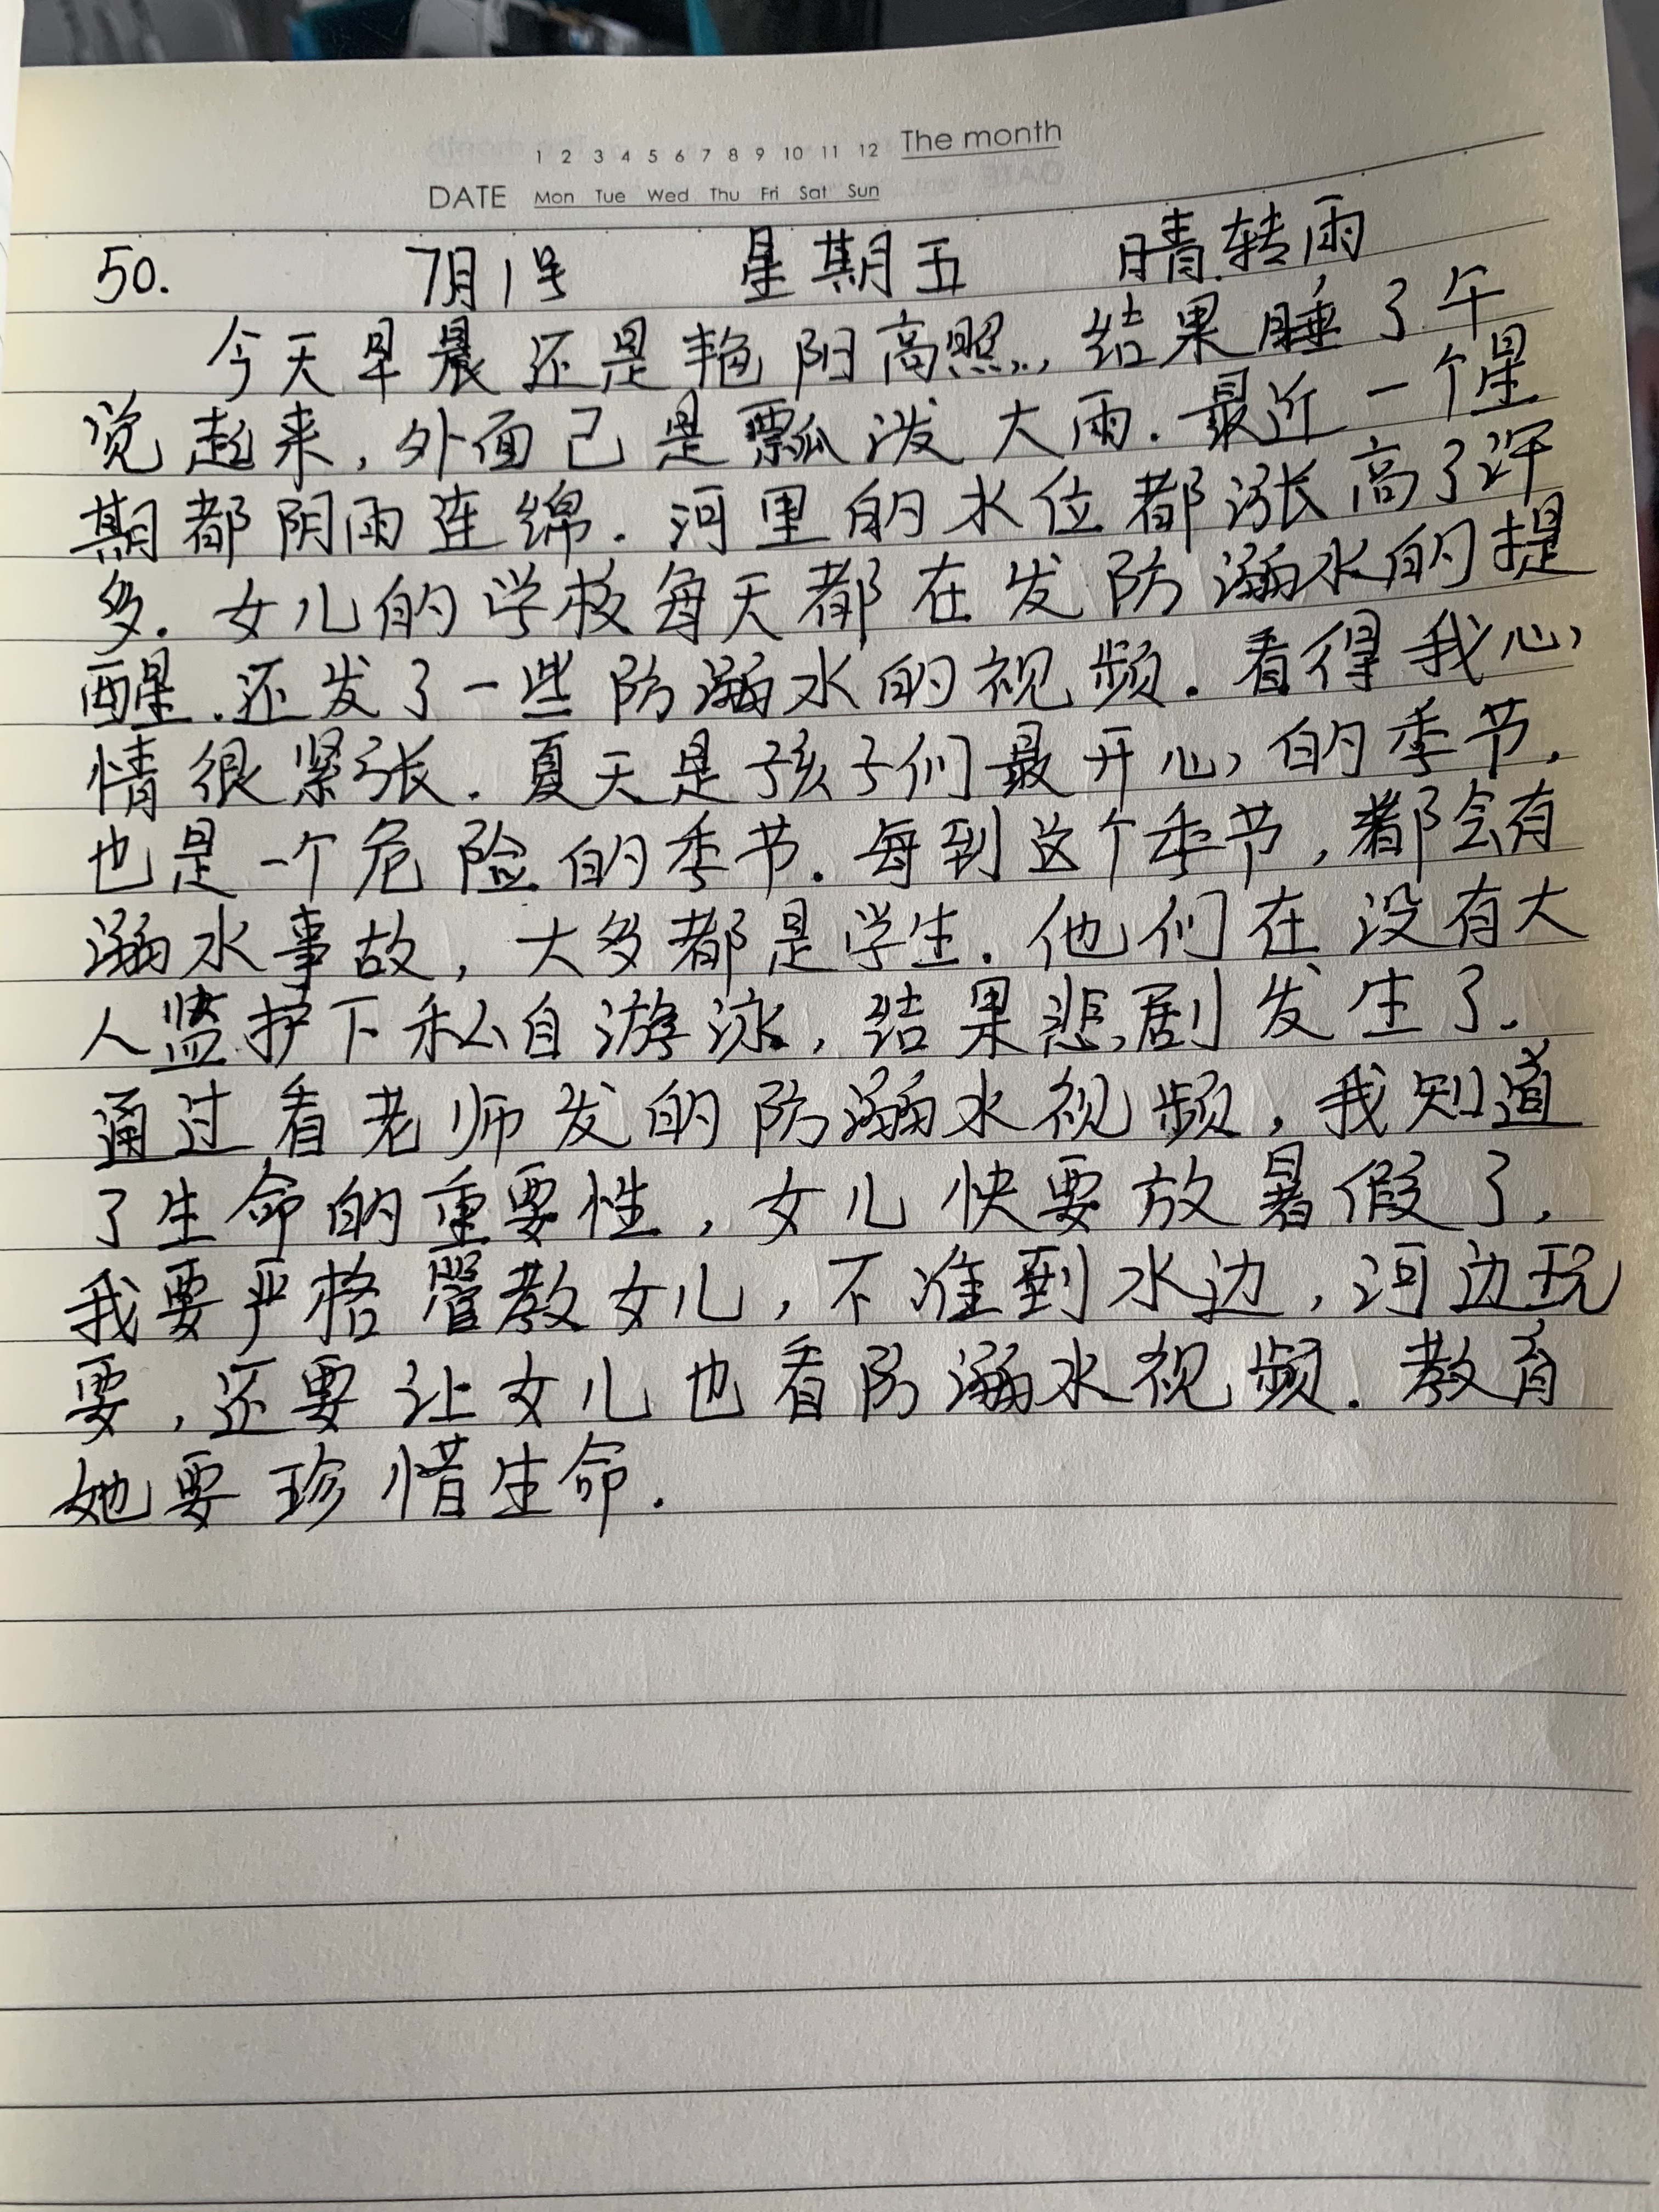 1 2 3 4 5 6 7 8 9 10 11 12 The month
DATE Mon Tue Wed Thu Fri Sat Sun
50. 7月1号 星期五 晴转雨
今天早晨还是艳阳高照,结果睡了午
觉起来,外面已是瓢泼大雨.最近一个星
期都阴雨连绵.河里的水位都涨高了许
多.女儿的学校每天都在发防溺水的提
醒.还发了一些防溺水的视频.看得我心
情很紧张.夏天是孩子们最开心的季节.
也是一个危险的季节.每到这个季节,都会有
溺水事故,大多都是学生.他们在没有大
人监护下私自游泳,结果悲剧发生了.
通过看老师发的防溺水视频,我知道
了生命的重要性,女儿快要放暑假了,
我要严格管教女儿,不准到水边,河边玩
耍,还要让女儿也看防溺水视频.教育
她要珍惜生命.